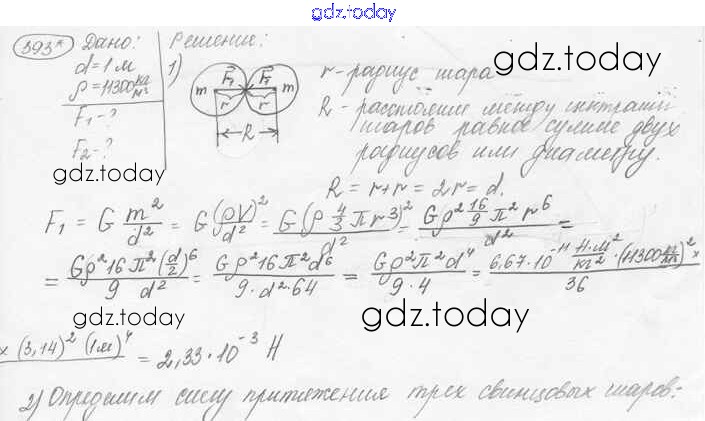 gdz.today
393* Дано: Решение:
d = 1 м
ρ = 11300 кг/м³
F₁ - ?
F₂ - ?
1)
m F₁ F₁ m
r r
R
r - радиус шара
gdz.today
R - расстояние между центрами
шаров равное сумме двух
радиусов или диаметру.
gdz.today
gdz.today
R = r + r = 2r = d.
F₁ = G m²/d² = G (ρV)²/d² = G (ρ 4/3 π r³)²/d² = Gρ² 16/9 π² r⁶/d² =
= Gρ² 16 π² (d/2)⁶/9 d² = Gρ² 16 π² d⁶/9·d²·64 = Gρ² π² d⁴/9·4 = 6,67·10⁻¹¹ Н·м²/кг² · (11300 кг/м³)² ×/36
gdz.today
gdz.today
× (3,14)² (1м)⁴ = 2,33·10⁻³ Н
2) Определим силу притяжения трех свинцовых шаров: